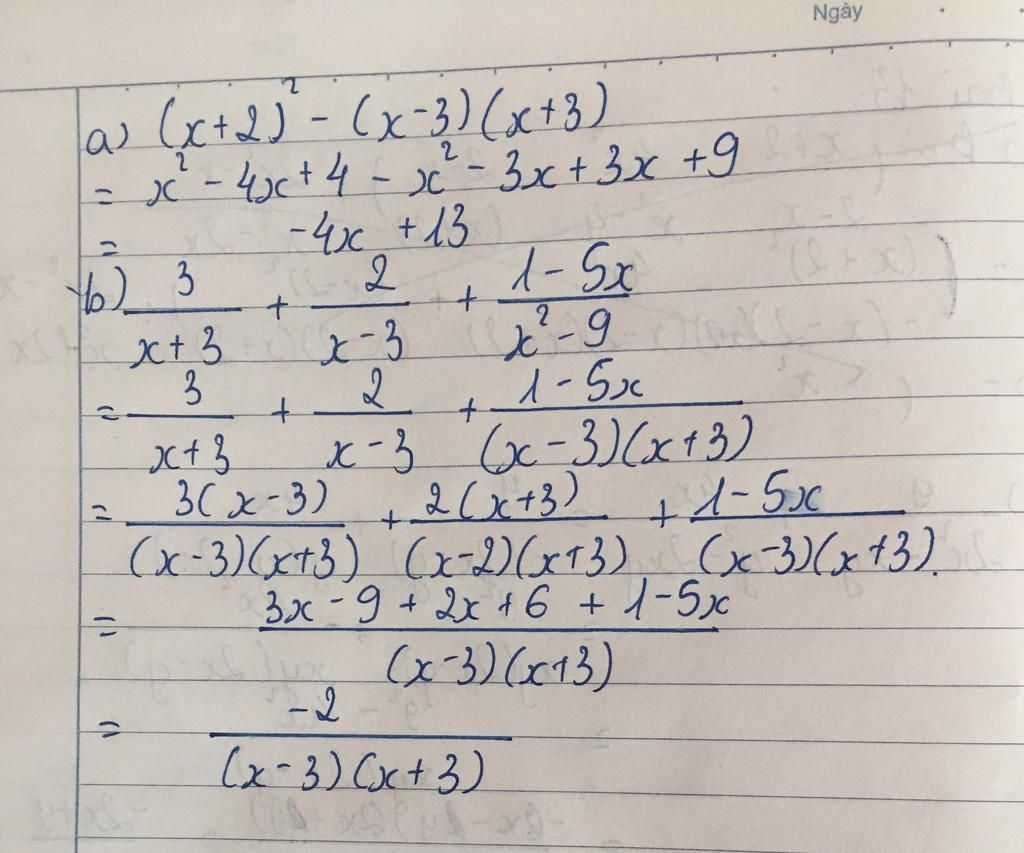 Ngày
a) (x+2)² - (x-3)(x+3)
= x² - 4x + 4 - x² - 3x + 3x + 9
= -4x + 13
b) 3/(x+3) + 2/(x-3) + (1-5x)/(x²-9)
= 3/(x+3) + 2/(x-3) + (1-5x)/((x-3)(x+3))
= 3(x-3)/((x-3)(x+3)) + 2(x+3)/((x-2)(x+3)) + (1-5x)/((x-3)(x+3)).
= (3x - 9 + 2x + 6 + 1 - 5x)/((x-3)(x+3))
= -2/((x-3)(x+3))